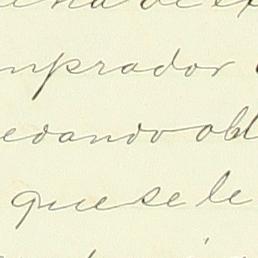 mprador
edando obl
que se le